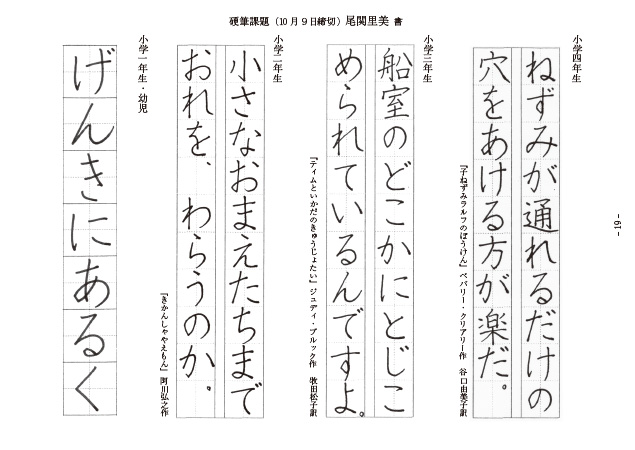 硬筆課題（10月9日締切）尾関里美 書
小学四年生
ねずみが通れるだけの
穴をあける方が楽だ。
『子ねずみラルフのぼうけん』ベバリー・クリアリー作 谷口由美子訳
小学三年生
船室のどこかにとじこ
められているんですよ。
『ティムといかだのきゅうじょたい』ジュディ・ブルック作 牧田松子訳
小学二年生
小さなおまえたちまで
おれを、わらうのか。
『きかんしゃやえもん』阿川弘之作
小学一年生・幼児
げんきにあるく
- 19 -